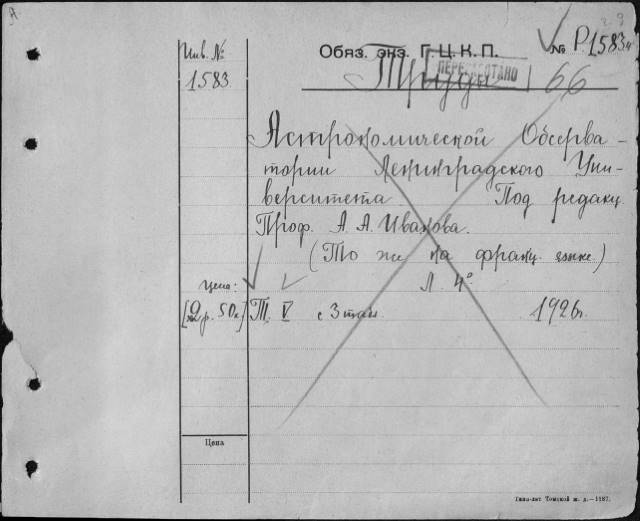 Инв. №
1583
Обяз. экз. Г.Ц.К.П. № Р1583
ПЕРЕРАБОТАНО
Труды 66
Астрономической Обсерва-
тории Ленинградского Уни-
верситета. Под редакц.
Проф. А. А. Иванова.
(То же на франц. языке.)
Л. 4°
цена:
[2 р. 50к.] Т. V с 3 табл. 1926г.
Цена
Типо-лит. Томской ж. д.—1187.